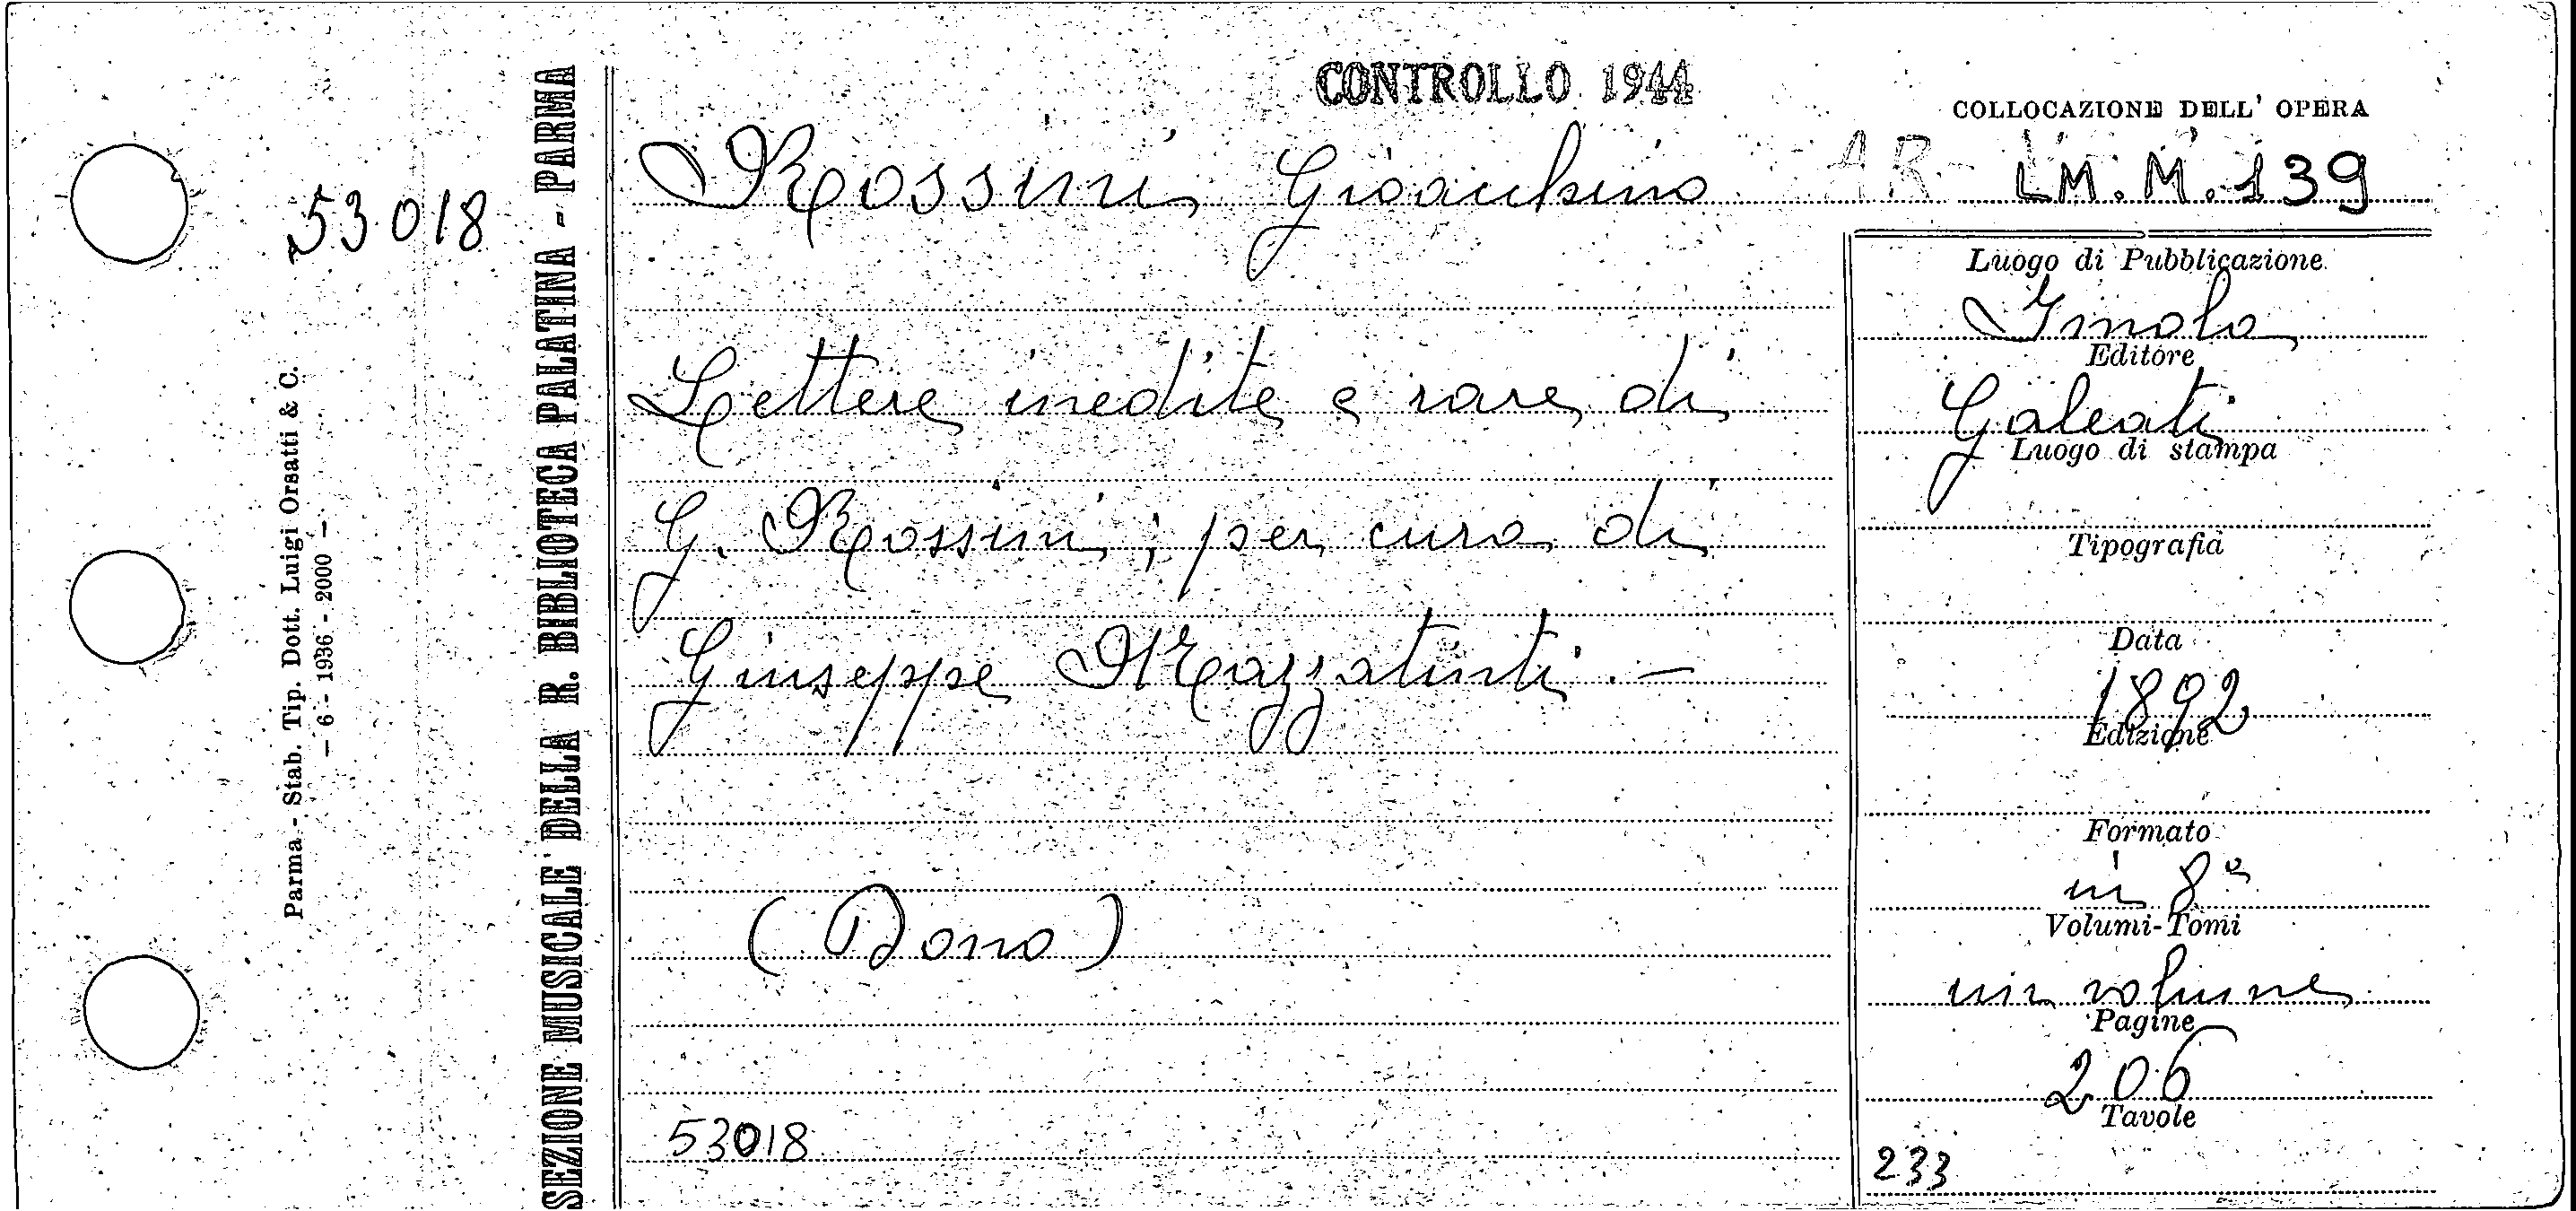 CONTROLLO 1944
COLLOCAZIONE DELL' OPERA
Rossini Gioacchino
AR-
LM.M.139
53018
SEZIONE MUSICALE DELLA R. BIBLIOTECA PALATINA - PARMA
Parma - Stab. Tip. Dott. Luigi Orsatti & C.
— 6 - 1936 - 2000 —
Lettere inedite e rare di
G. Rossini; per cura di
Giuseppe Mazzatinti. —
(Dono)
53018
Luogo di Pubblicazione
Imola
Editore
Galeati
Luogo di stampa
Tipografia
Data
1892
Edizione
Formato
in 8º
Volumi-Tomi
un volume
Pagine
206
Tavole
233